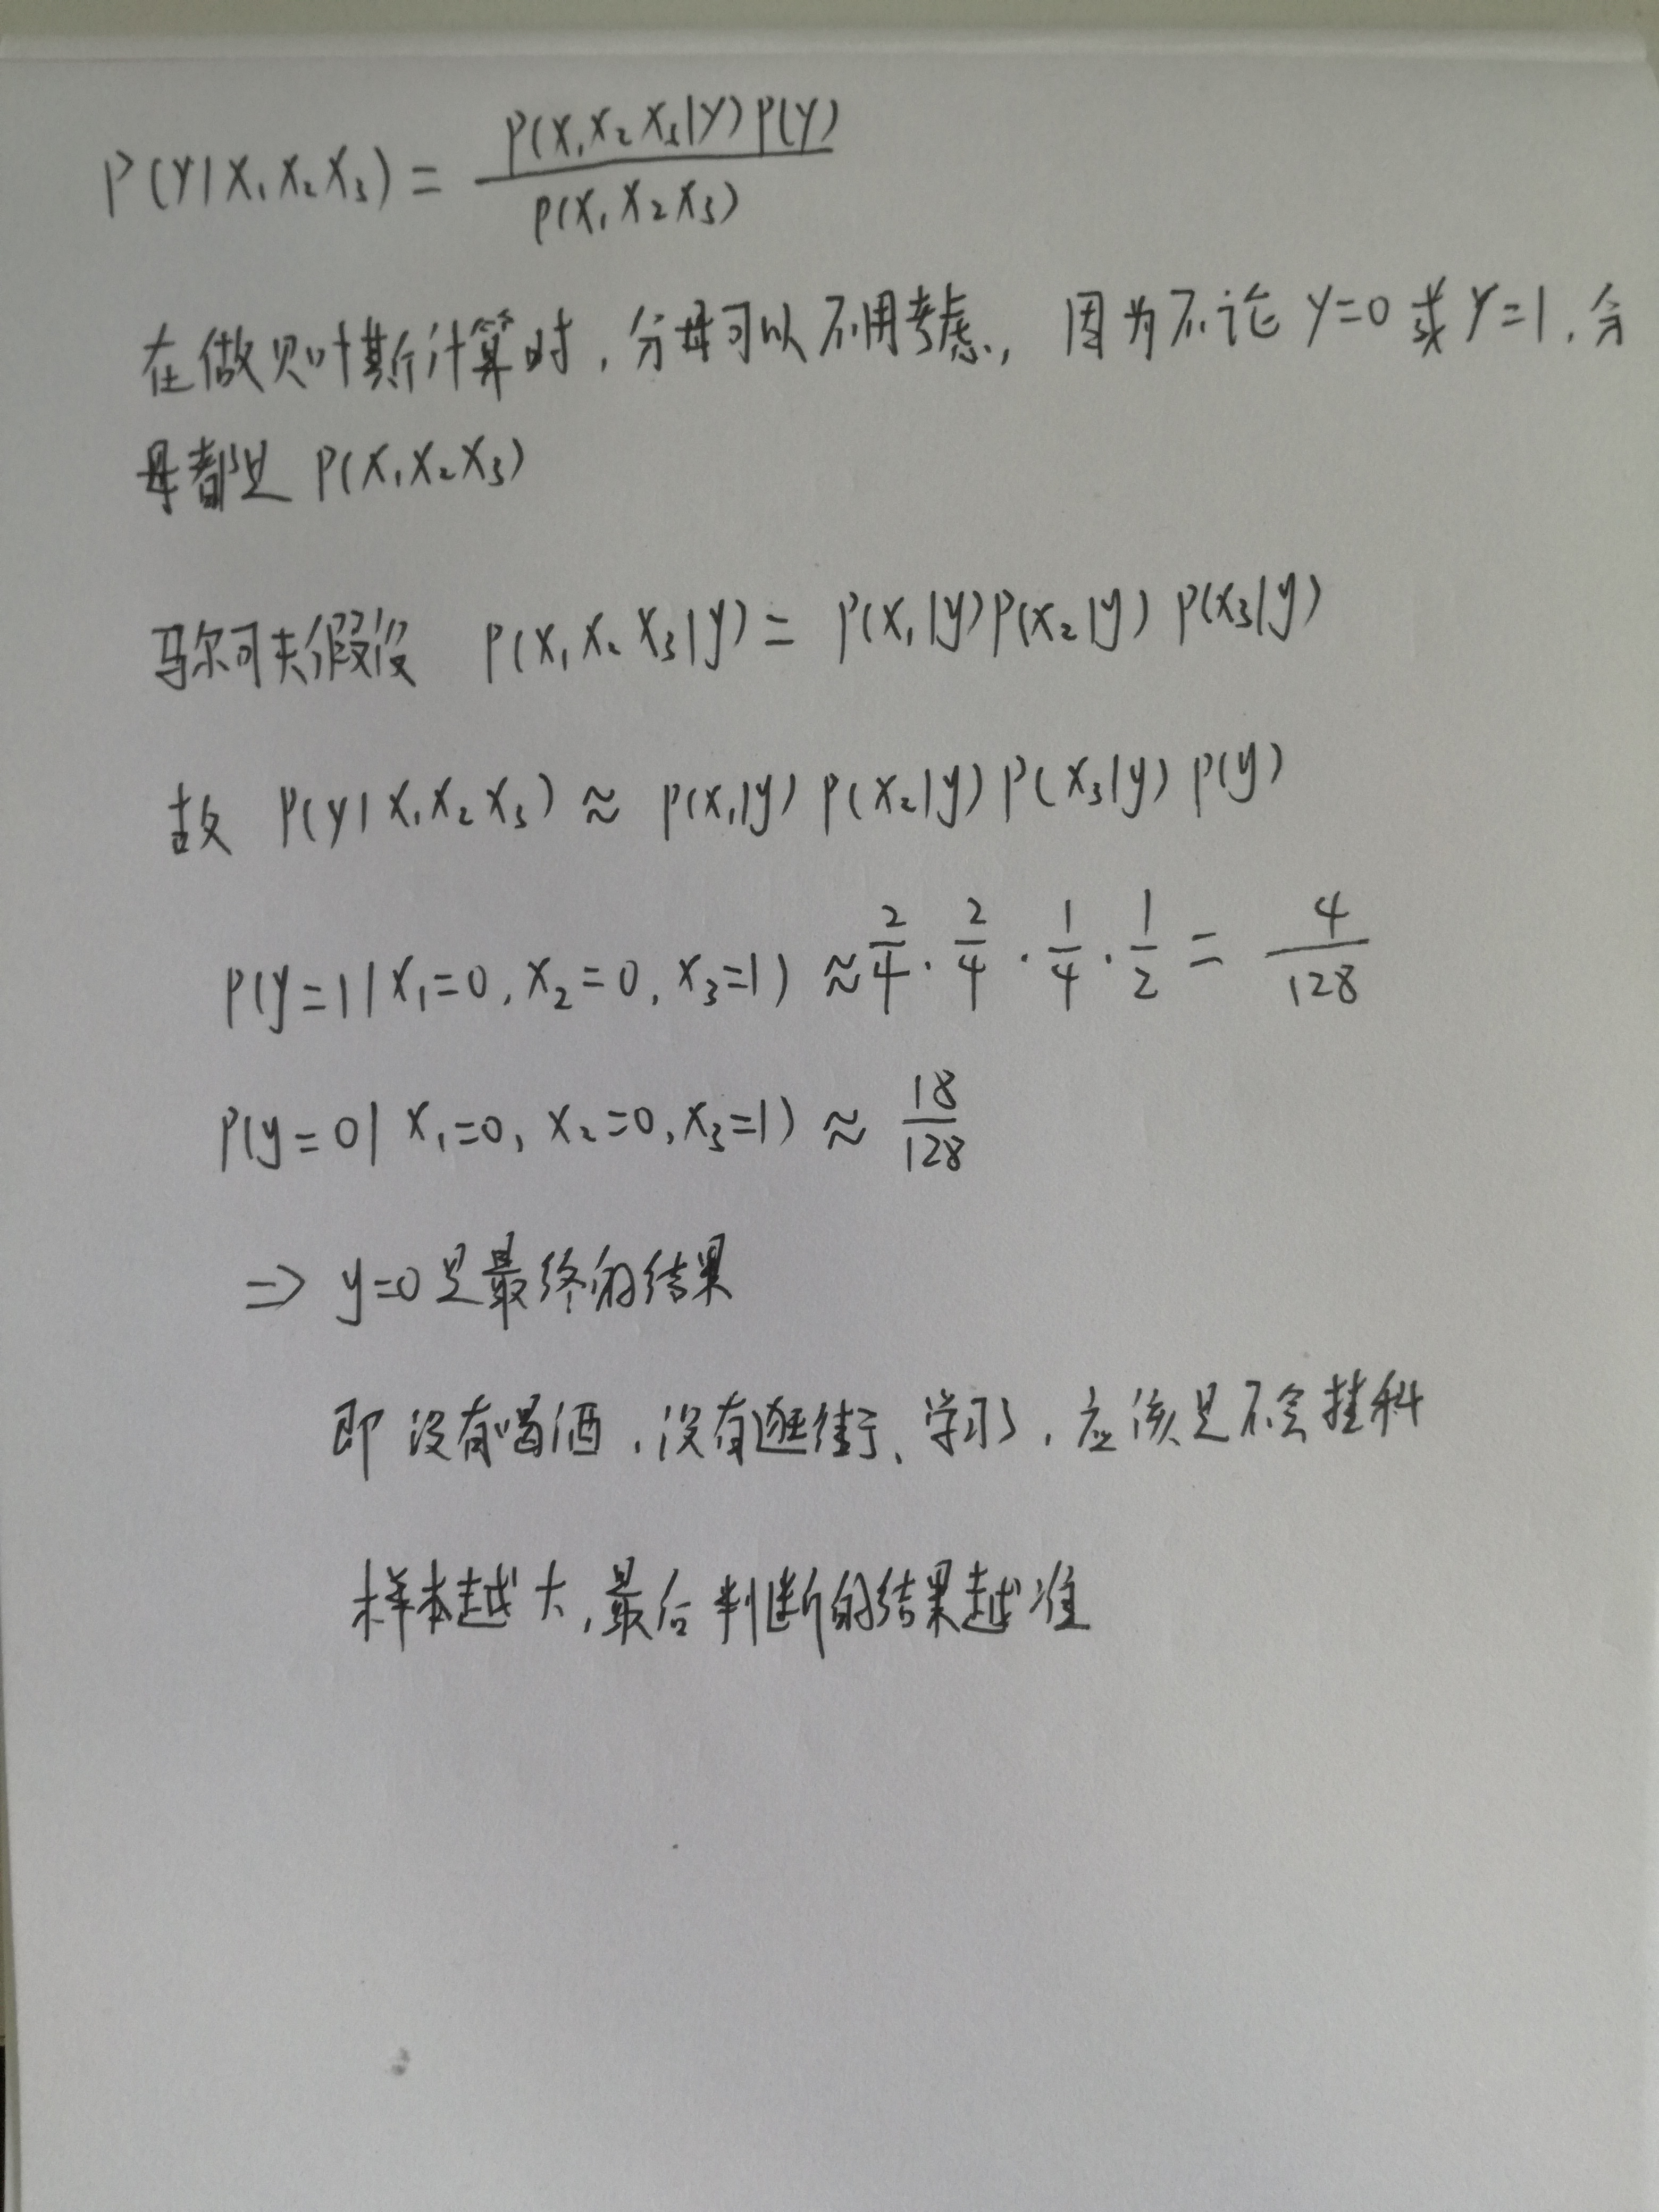 P(Y|X₁X₂X₃) = P(X₁X₂X₃|Y)P(Y) / P(X₁X₂X₃)
在做贝叶斯计算时，分母可以不用考虑，因为不论 Y=0 或 Y=1，分
母都是 P(X₁X₂X₃)
马尔可夫假设 P(X₁X₂X₃|y) = P(X₁|y)P(X₂|y) P(X₃|y)
故 P(y|X₁X₂X₃) ≈ P(X₁|y) P(X₂|y) P(X₃|y) P(y)
P(y=1|X₁=0, X₂=0, X₃=1) ≈ 2/4 · 2/4 · 1/4 · 1/2 = 4/128
P(y=0|X₁=0, X₂=0, X₃=1) ≈ 18/128
⇒ y=0是最终的结果
即没有喝酒，没有逛街、学习了，应该是不会挂科
样本越大，最后判断的结果越准